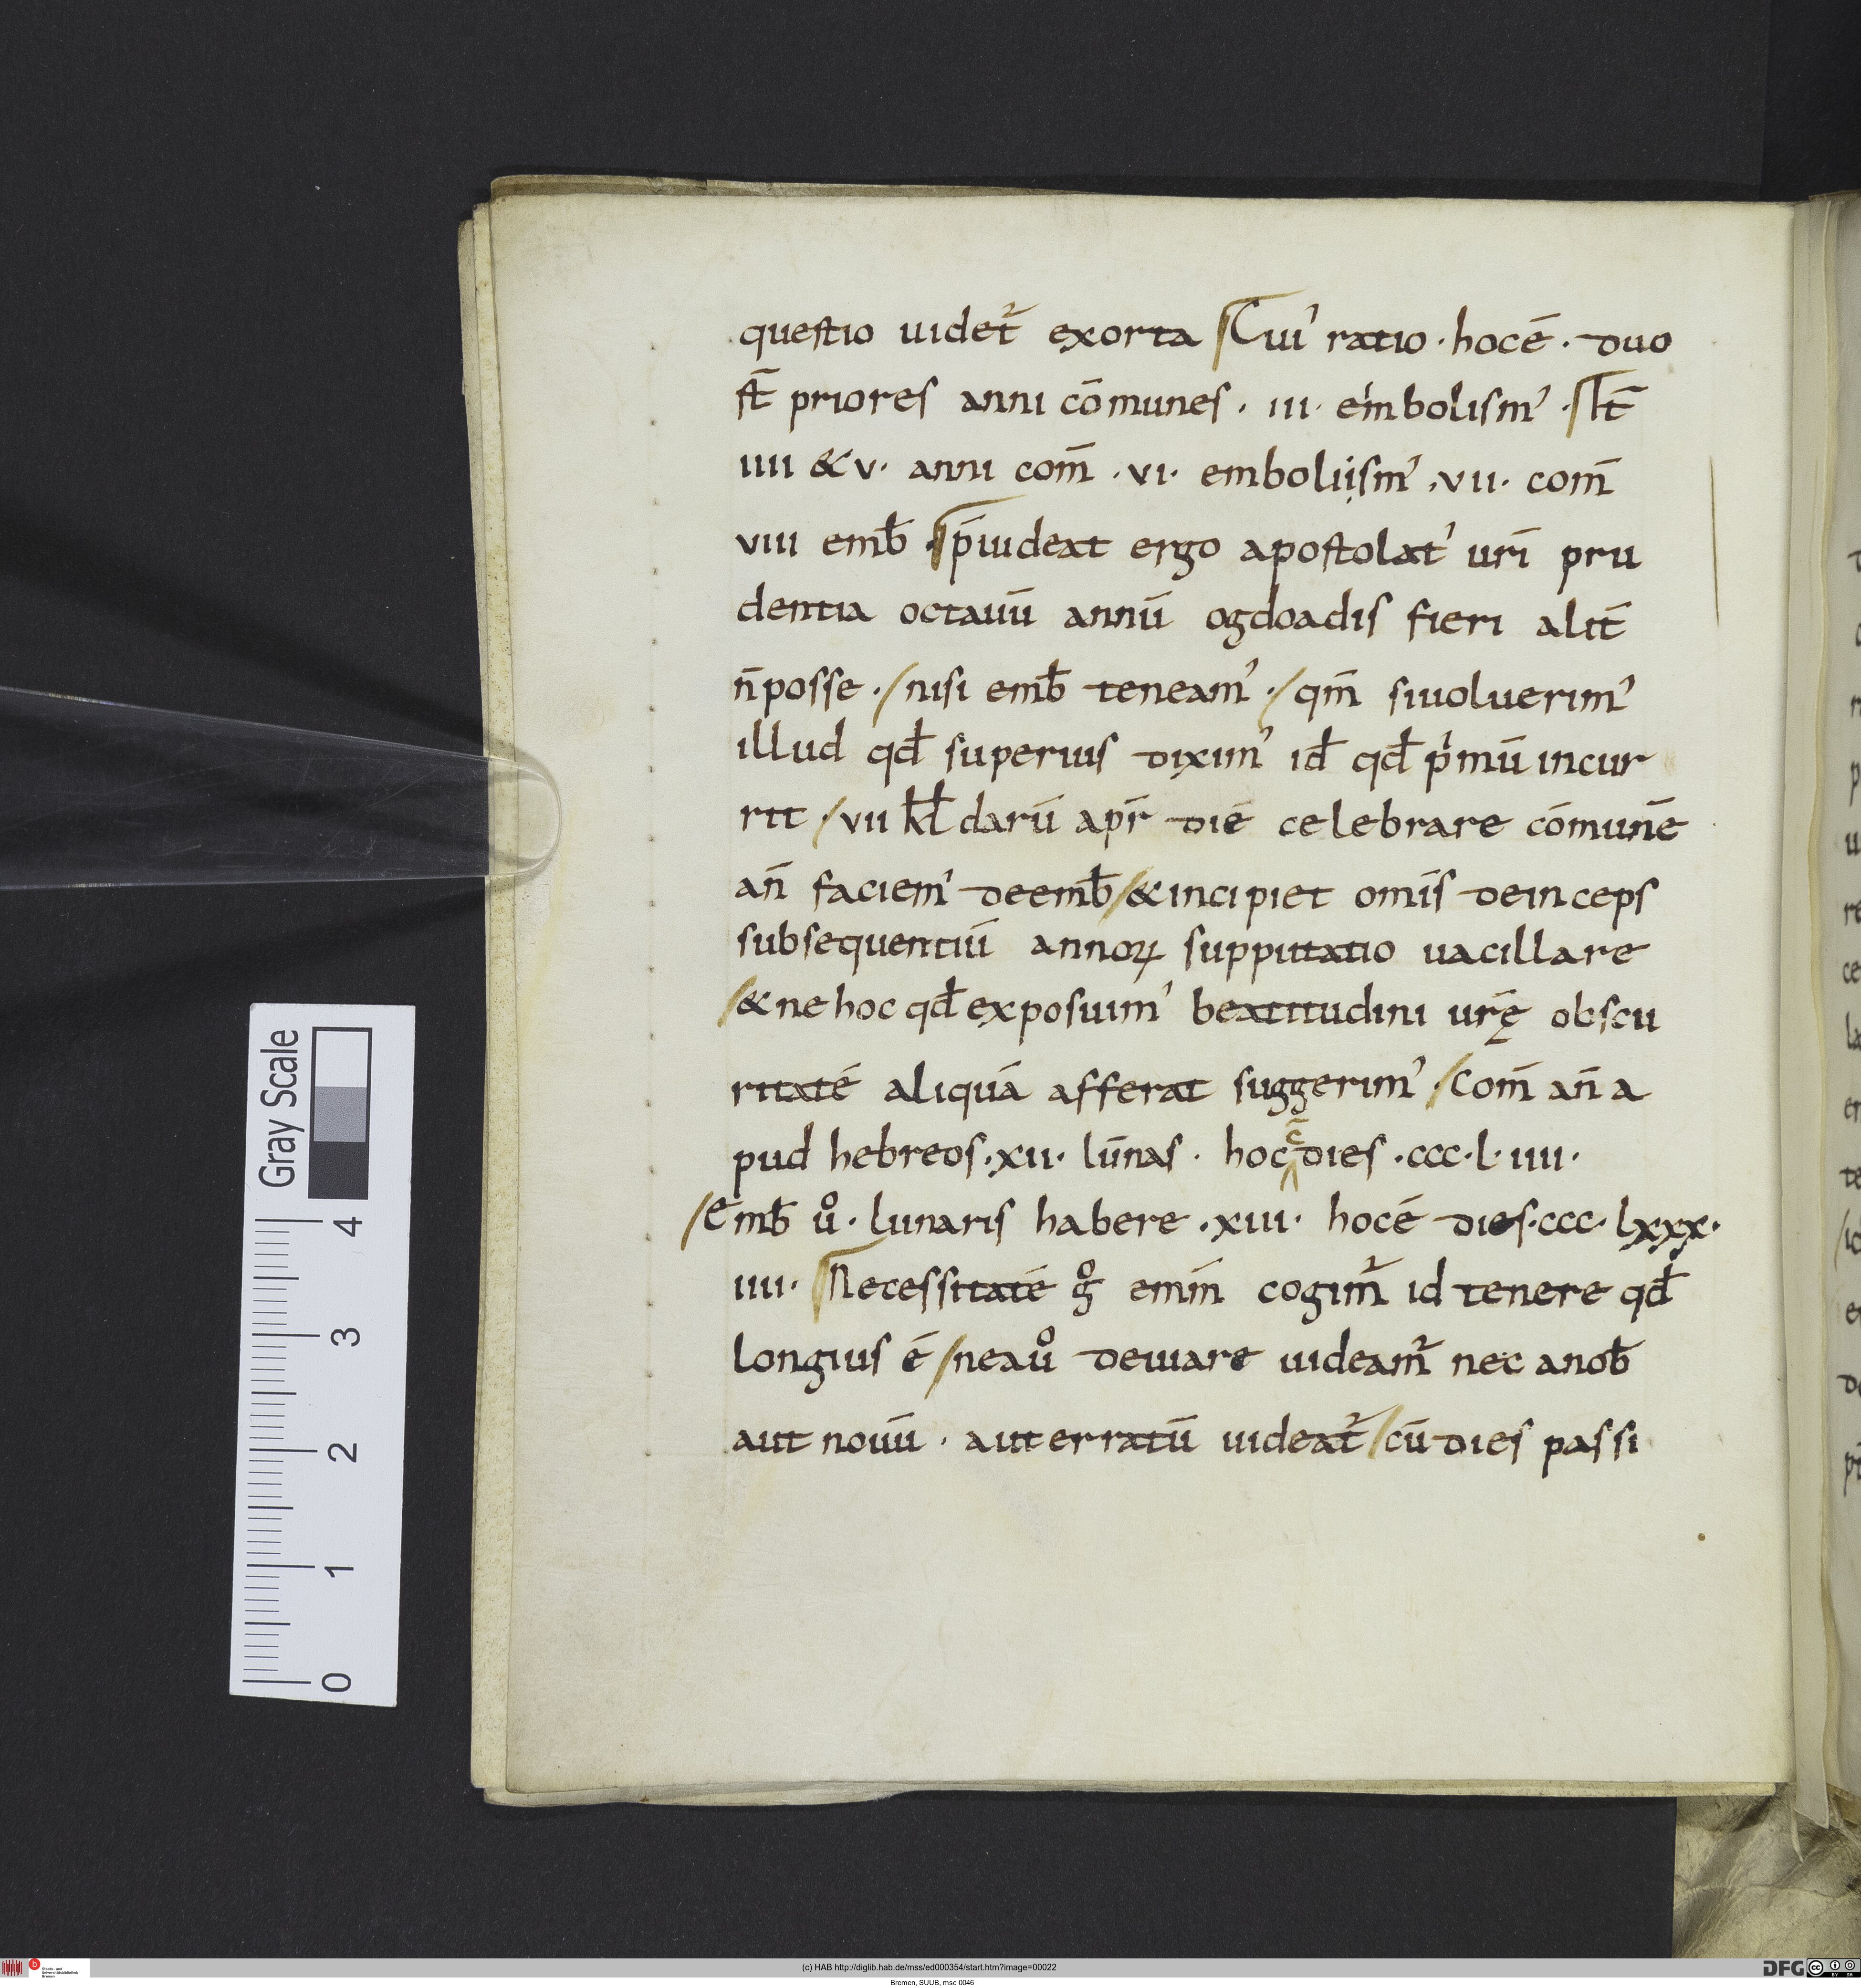 questio uidet᷑ exorta Cui' ratio · hoc ē · duo
st̄ priores anni cōmunes · iii · embolism' · It̄
iiii & v · anni com̄ · vi · emboliism' · vii · com̄
viii emb̄ · p̄uideat ergo apostolat' ur̄i pru
dentia octauū annū ogdoadis fieri alit̄
n̄ posse · / nisi emb̄ teneam' · / qm̄ si uoluerim'
illud qđ superius dixim' iđ qđ pⁱmū incur
rit / vii kłdarū apr̄ diē celebrare cōmunē
an̄ faciem' de emb̄ / & incipiet om̄is deinceps
subsequentiū annoꝝ supputatio uacillare
/ & ne hoc qđ exposuim' beatitudini ur̄ę obscu
ritatē aliquā afferat suggerim' · / Com̄ an̄ a
pud hebreos · xii · lūnas · hoc ē dies · ccc · l · iiii ·
/ Emb̄ uͦ · lunaris habere · xiii · hoc ē dies · ccc · lxxx ·
iiii · Necessitatē gͦ emin̄ cogim᷑ id tenere qđ
longius ē / ne a uͦ deuiare uideam᷑ nec a nob̄
aut nouū · aut erratū uideat᷑ / cū dies passi
Gray Scale
4
3
2
1
0
(c) HAB http://diglib.hab.de/mss/ed000354/start.htm?image=00022
Bremen, SUUB, msc 0046
DFG